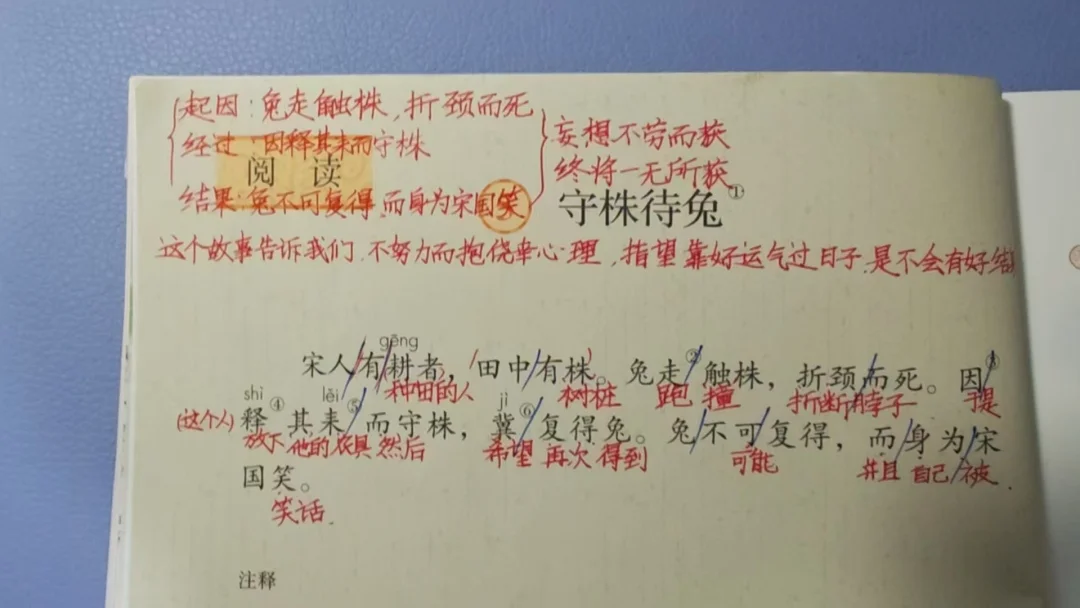 起因:兔走触株,折颈而死
经过 因释其耒而守株
妄想不劳而获
阅 读
终将一无所获
结果:兔不可复得,而身为宋国笑
守株待兔①
这个故事告诉我们,不努力而抱侥幸心理,指望靠好运气过日子,是不会有好结
gēng
宋人有耕者,田中有株。兔走②触株,折颈而死。因③
种田的人 树桩 跑 撞 折断 脖子 于是
shì lěi jì
(这个人)释④其耒⑤而守株,冀⑥复得兔。兔不可复得,而身为宋
放下 他的农具 然后 希望 再次 得到 可能 并且 自己 被
国笑。
笑话
注释